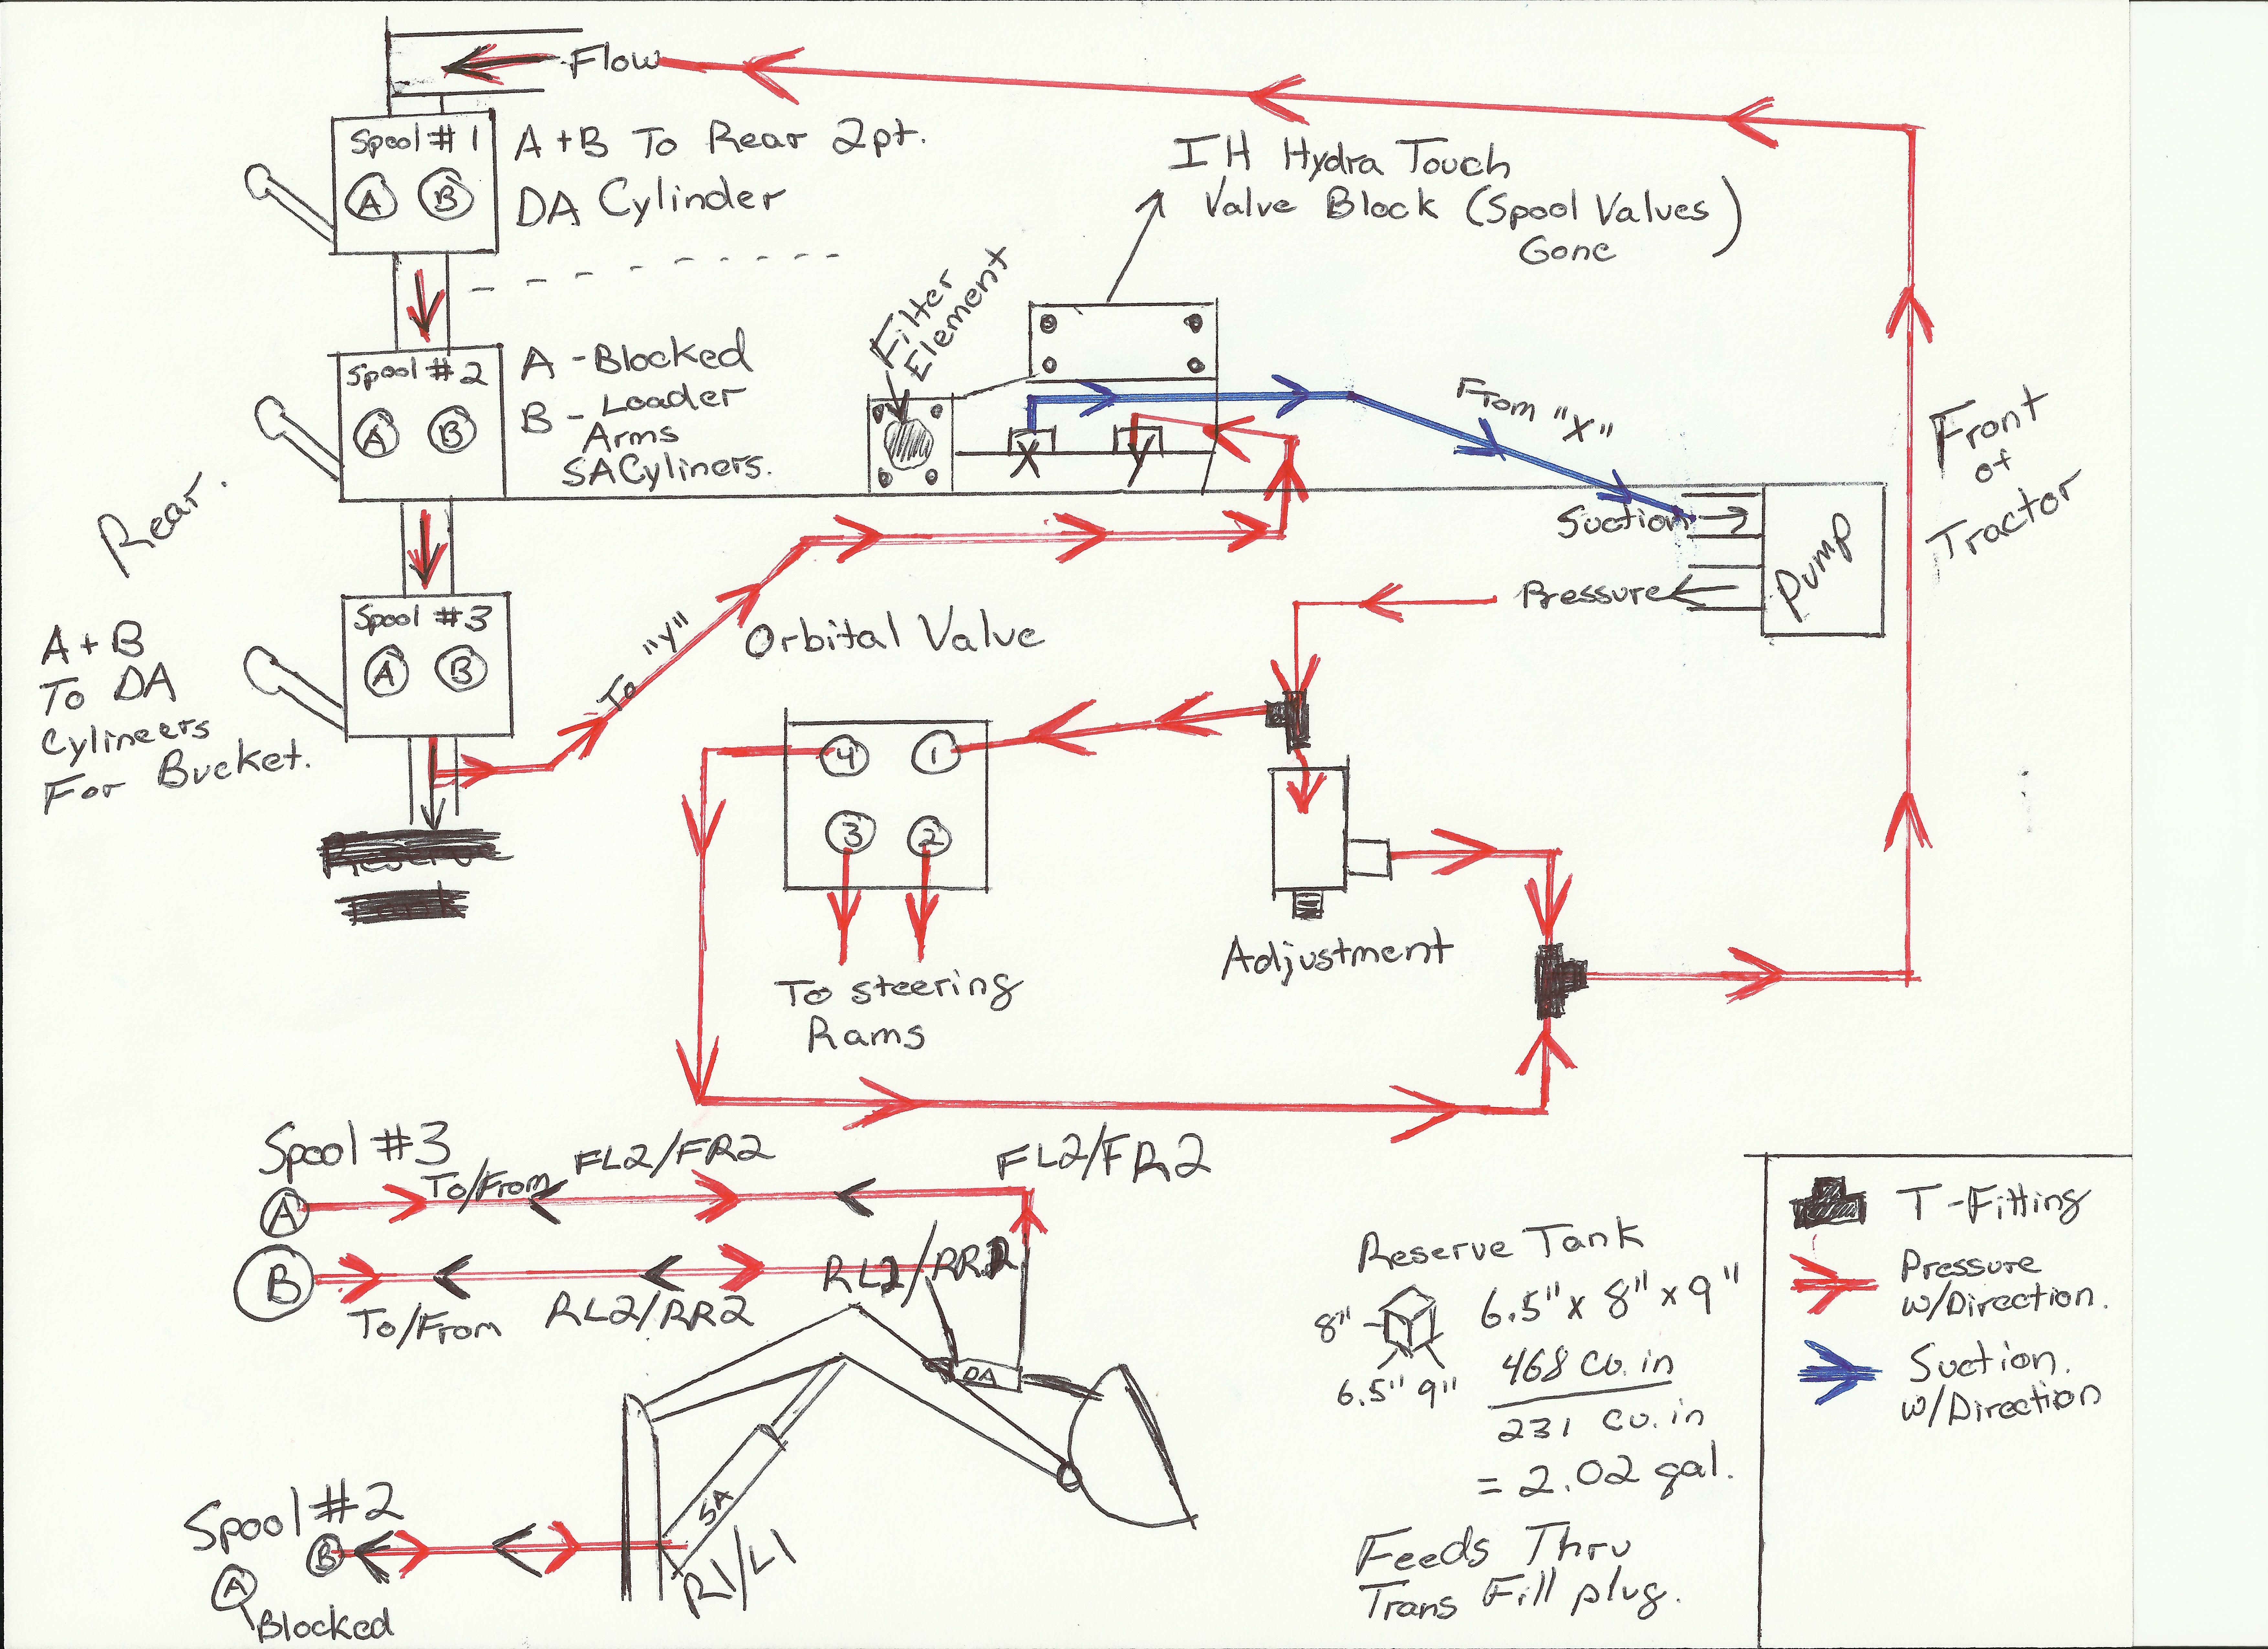 Flow
Spool #1
A B
A+B To Rear 2pt.
DA Cylinder
IH Hydra Touch
Valve Block (Spool Valves)
Gone
Filter
Element
Spool #2
A B
A - Blocked
B - Loader
Arms
SA Cyliners.
X Y
From "X"
Suction
Pump
Pressure
Front
of
Tractor
Rear.
Spool #3
A B
A+B
To DA
Cylineers
For Bucket.
To "Y"
Orbital Valve
4 1
3 2
To steering
Rams
Adjustment
Reserve
Spool #3
A
To/From
FL2/FR2
FL2/FR2
B
To/From
RL2/RR2
RL2/RR2
DA
SA
R1/L1
Spool #2
B
A
Blocked
Reserve Tank
8"
6.5" 9"
6.5" x 8" x 9"
468 cu. in
231 cu. in
= 2.02 gal.
Feeds Thru
Trans Fill plug.
T-Fitting
Pressure
w/Direction.
Suction.
w/Direction